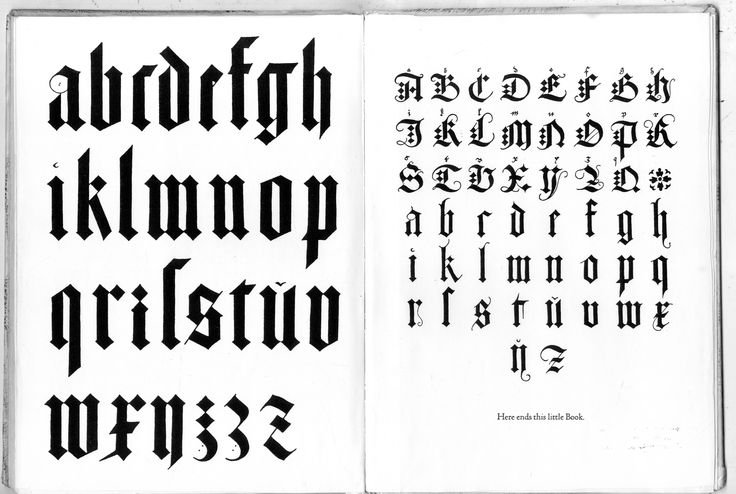 abcdefgh
iklmnop
qriſstŭv
wxyzzz
A B C D E F G H
I K L M N O P R
S T V X Y Z Q
a b c d e f g h
i k l m n o p q
r ſ s t ŭ v w x
ÿ z
Here ends this little Book.